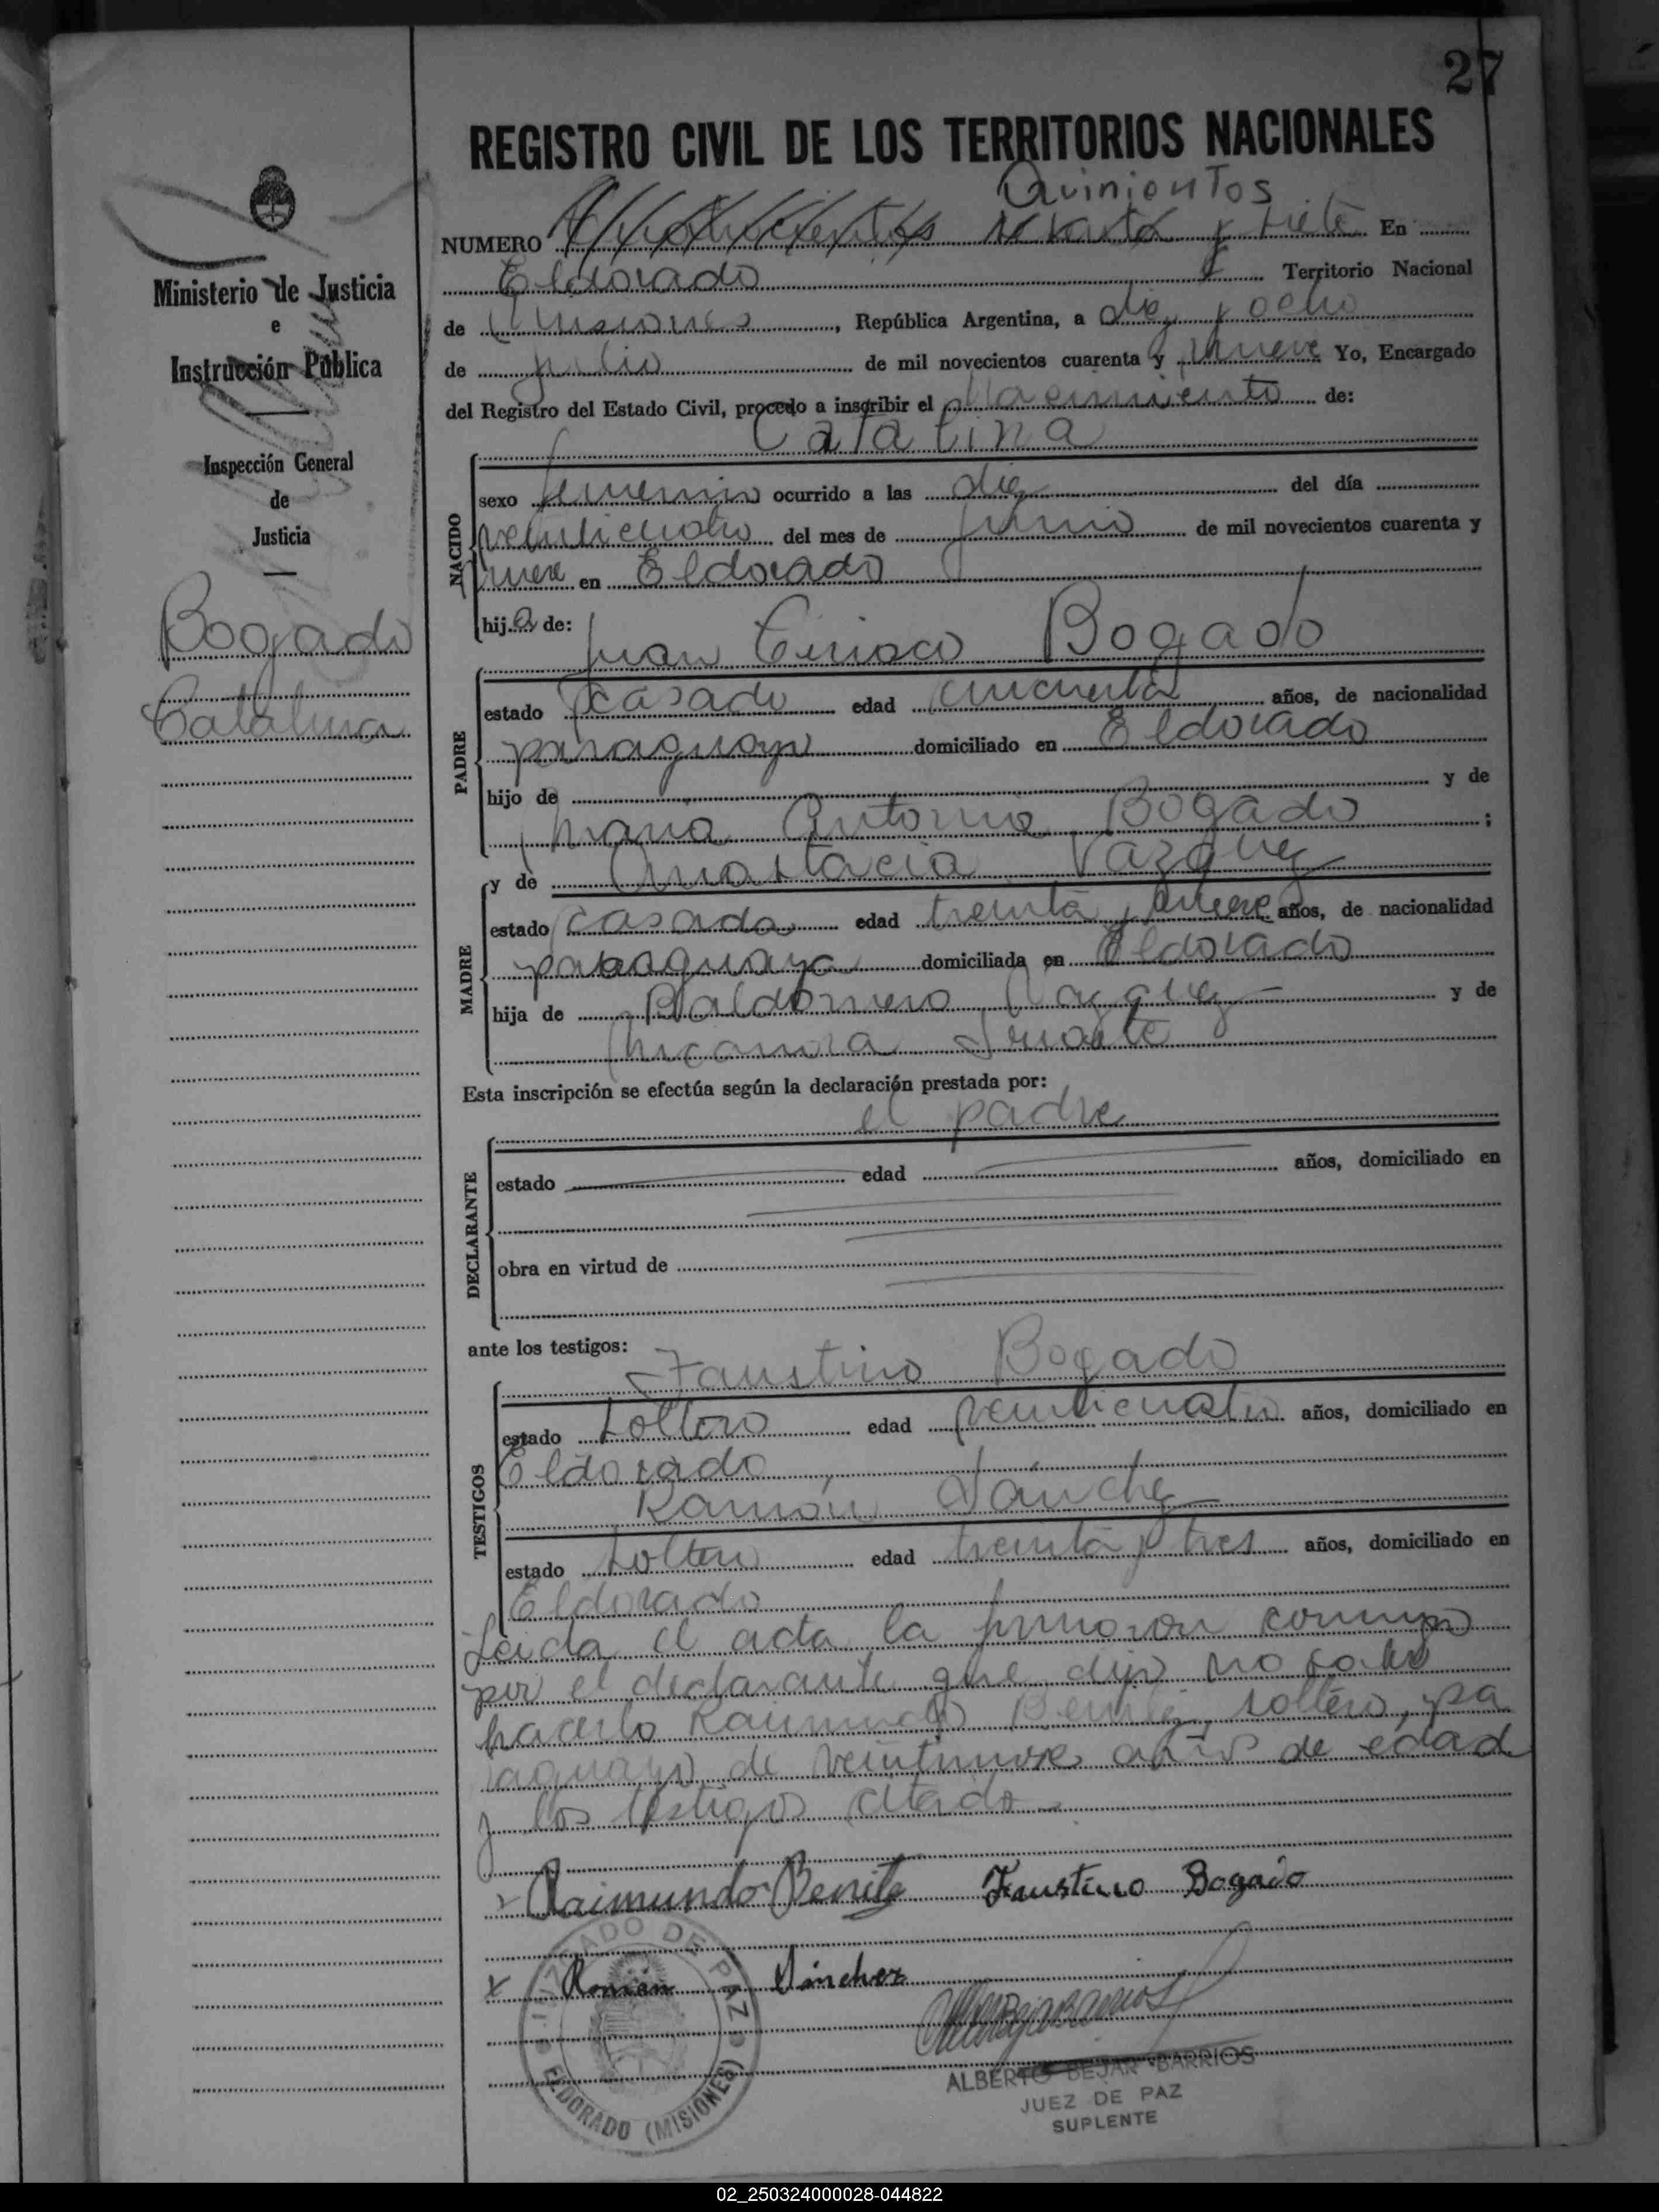 27
REGISTRO CIVIL DE LOS TERRITORIOS NACIONALES
Quinientos
NUMERO y siete En
Eldorado Territorio Nacional
de Misiones, República Argentina, a diez y ocho
de julio de mil novecientos cuarenta y nueve Yo, Encargado
del Registro del Estado Civil, procedo a inscribir el nacimiento de:
Catalina
NACIDO
sexo femenino ocurrido a las diez del día
veinticuatro del mes de junio de mil novecientos cuarenta y
nueve en Eldorado
hija de:
Juan Ciriaco Bogado
PADRE
estado casado edad cincuenta años, de nacionalidad
paraguayo domiciliado en Eldorado
hijo de y de
Maria Antonia Bogado ;
y de Anastacia Vazquez
MADRE
estado casada edad treinta y nueve años, de nacionalidad
paraguaya domiciliada en Eldorado
hija de Baldomero Vazquez y de
Nicanora Iriarte
Esta inscripción se efectúa según la declaración prestada por:
el padre
DECLARANTE
estado edad años, domiciliado en
obra en virtud de
ante los testigos:
Faustino Bogado
TESTIGOS
estado soltero edad veinticuatro años, domiciliado en
Eldorado
Ramón Sánchez
estado soltero edad treinta y tres años, domiciliado en
Eldorado
Leida el acta la firmaron conmigo
por el declarante que dijo no saber
hacerlo Raimundo Benitez, soltero, pa
raguayo de veintinueve años de edad
y los testigos citados
x Raimundo Benitez Faustino Bogado
x Ramón Sánchez
JUZGADO DE PAZ
ELDORADO (MISIONES)
ALBERTO BEJAR BARRIOS
JUEZ DE PAZ
SUPLENTE
Ministerio de Justicia
e
Instrucción Pública
Inspección General
de
Justicia
Bogado
Catalina
02_250324000028-044822